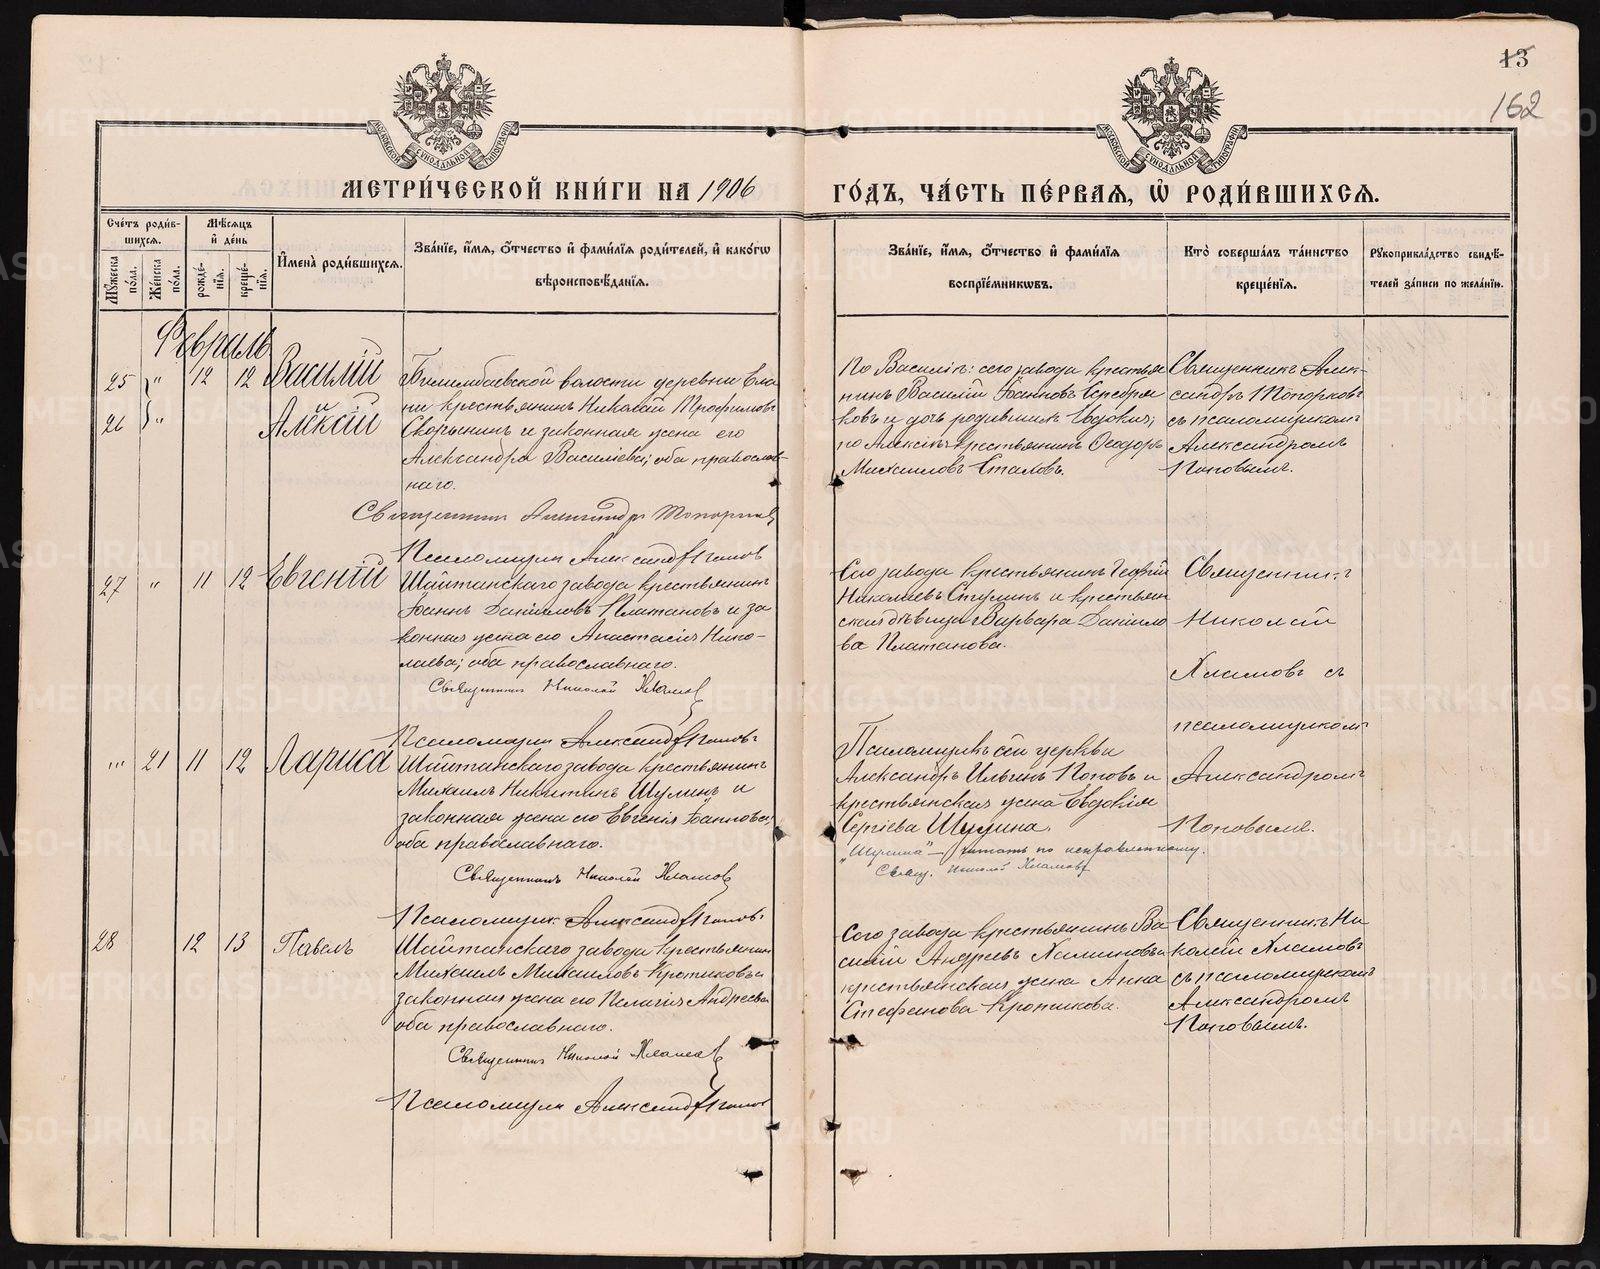 13
162
МОСКОВСКОЙ СѴНОДАЛЬНОЙ ТИПОГРАФІИ
МОСКОВСКОЙ СѴНОДАЛЬНОЙ ТИПОГРАФІИ
МЕТРИ́ЧЕСКОЙ КНИ́ГИ НА 1906
ГО́ДЪ, ЧА́СТЬ ПЕ́РВАЯ, Ѡ҆ РОДИ́ВШИХСѦ.
Сче́тъ роди́в-
шихсѧ.
Мꙋ́жеска по́ла.
Же́нска по́ла.
Мѣ́сѧцъ
и҆ де́нь
рожде́-
нїѧ.
креще́-
нїѧ.
И҆мена̀ роди́вшихсѧ.
Зва́нїе, и҆́мѧ, ѻ҆́тчество и҆ фами́лїѧ роди́телей, и҆ како́гѡ
вѣроисповѣ́данїѧ.
Зва́нїе, и҆́мѧ, ѻ҆́тчество и҆ фами́лїѧ
воспрїе́мникѡвъ.
Кто̀ соверша́лъ та́инство
креще́нїѧ.
Рꙋкоприкла́дство свидѣ́-
телей за́писи по жела́нїю.
Февраль
25 " 12 12 Василій
26 " Алексій
Билимбаевской волости деревни Ела
ни крестьянинъ Николай Трофимовъ
Скорынинъ и законная жена его
Александра Василіева; оба православ-
наго.
Священникъ Александръ Топорковъ
Псаломщик Александръ Попов
По Василіѣ: сего завода крестья
нинъ Василій Іоанновъ Серебря
ковъ и дочь родившихъ Евдокія;
по Алексіѣ: крестьянинъ Ѳеодоръ
Михаиловъ Сталовъ.
Священникъ Алек-
сандръ Топорковъ
съ псаломщикомъ
Александромъ
Поповымъ.
27 " 11 12 Евгеній
Шайтанскаго завода крестьянинъ
Іоаннъ Даніиловъ Платановъ и за
конная жена его Анастасія Нико-
лаева; оба православнаго.
Священникъ Николай Хламов
Псаломщик Александръ Попов
Сего завода крестьянинъ Георгій
Николаевъ Ступинъ и крестьян
ская дѣвица Варвара Даніило
ва Платанова.
Священникъ
Николай
Хламовъ съ
псаломщикомъ
Александромъ
Поповымъ.
" 21 11 12 Лариса
Шайтанскаго завода крестьянинъ
Михаилъ Никитинъ Шулинъ и
законная жена его Евгенія Іоаннова;
оба православнаго.
Священникъ Николай Хламов
Псаломщик Александръ Попов
Псаломщикъ сей церкви
Александръ Ильинъ Поповъ и
крестьянская жена Евдокія
Сергіева Шулина.
"Шулина" — читать по исправленному.
Свящ. Николай Хламовъ
28 12 13 Павелъ
Шайтанскаго завода крестьянинъ
Михаилъ Михаиловъ Кротиковъ и
законная жена его Пелагія Андреева
оба православнаго.
Священникъ Николай Хламов
Псаломщик Александръ Попов
Сего завода крестьянинъ Ва
силій Андреевъ Халиновъ и
крестьянская жена Анна
Стефанова Кротикова.
Священникъ Ни
колай Хламовъ
съ псаломщикомъ
Александромъ
Поповымъ.
METRIKI.GASO-URAL.RU